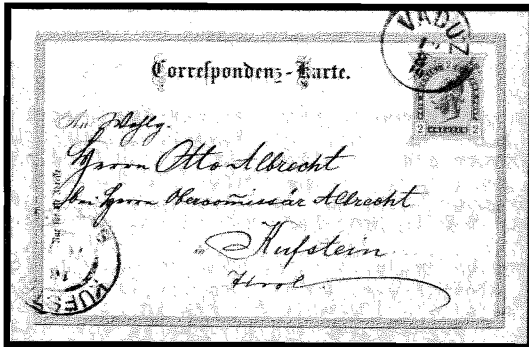 VADUZ
Correspondenz-Karte.
2 2
An Wohlg.
Herrn Otto Albrecht
bei Herrn Obercom̄issär Albrecht
in Kufstein
Tirol
KUFST